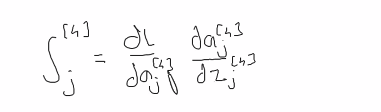 δ_j^[4] = ∂L/∂a_j^[4] ∂a_j^[4]/∂z_j^[4]